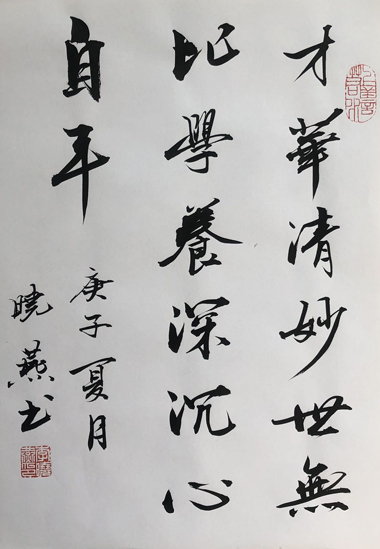 才華清妙世無
比學養深沉心
自平
庚子夏月
曉燕书